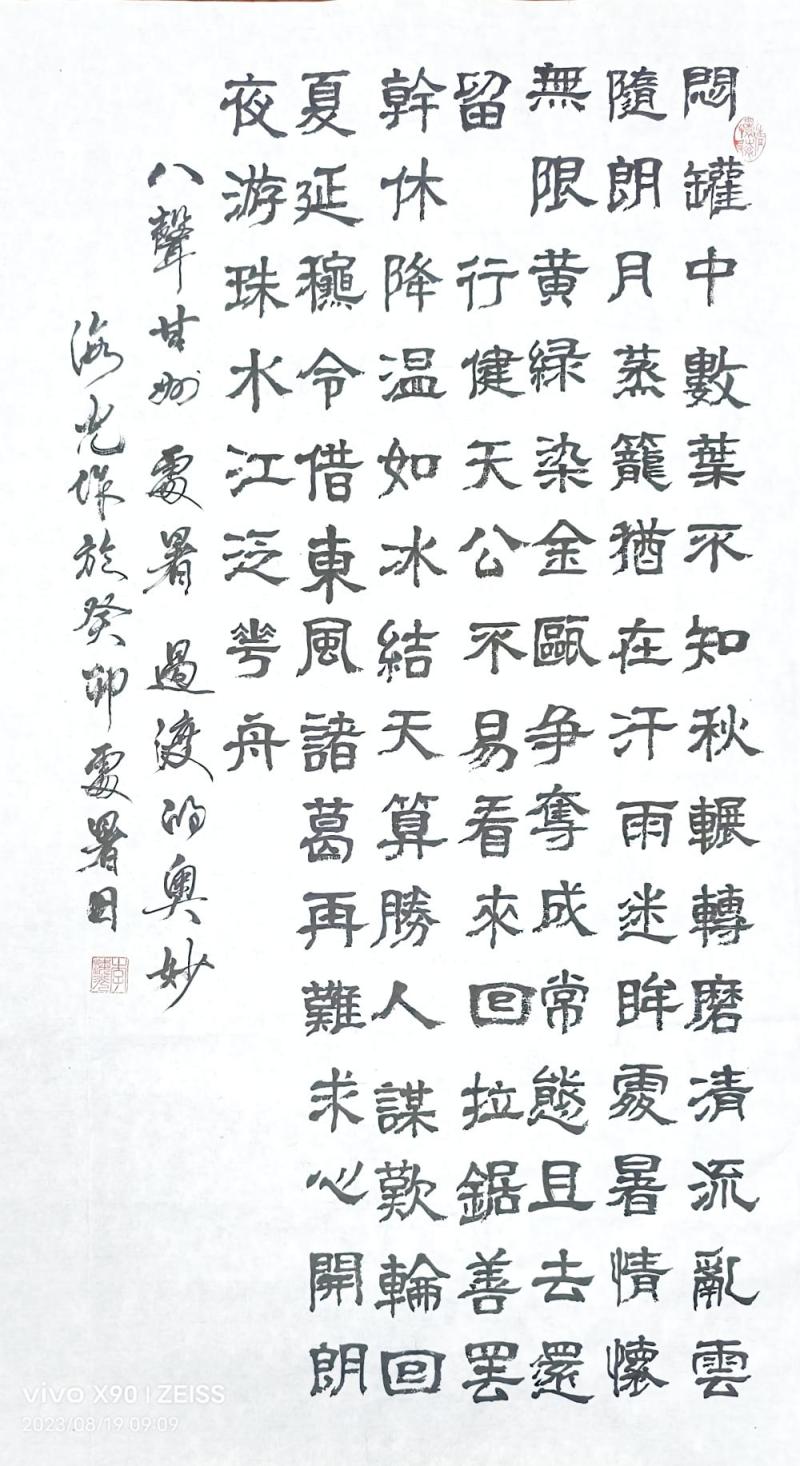 悶罐中數葉不知秋輾轉磨清流亂雲
隨朗月蒸籠猶在汗雨迷眸處暑情懷
無限黃綠染金甌爭奪成常態且去還
留 行健天公不易看來回拉鋸善罷
幹休降温如冰結天算勝人謀歎輪回
夏延穐令借東風諸葛再難求心開朗
夜游珠水江泛花舟
八聲甘州 處暑 過渡的奧妙
海光作於癸卯處暑日
vivo X90 | ZEISS
2023/08/19 09:09